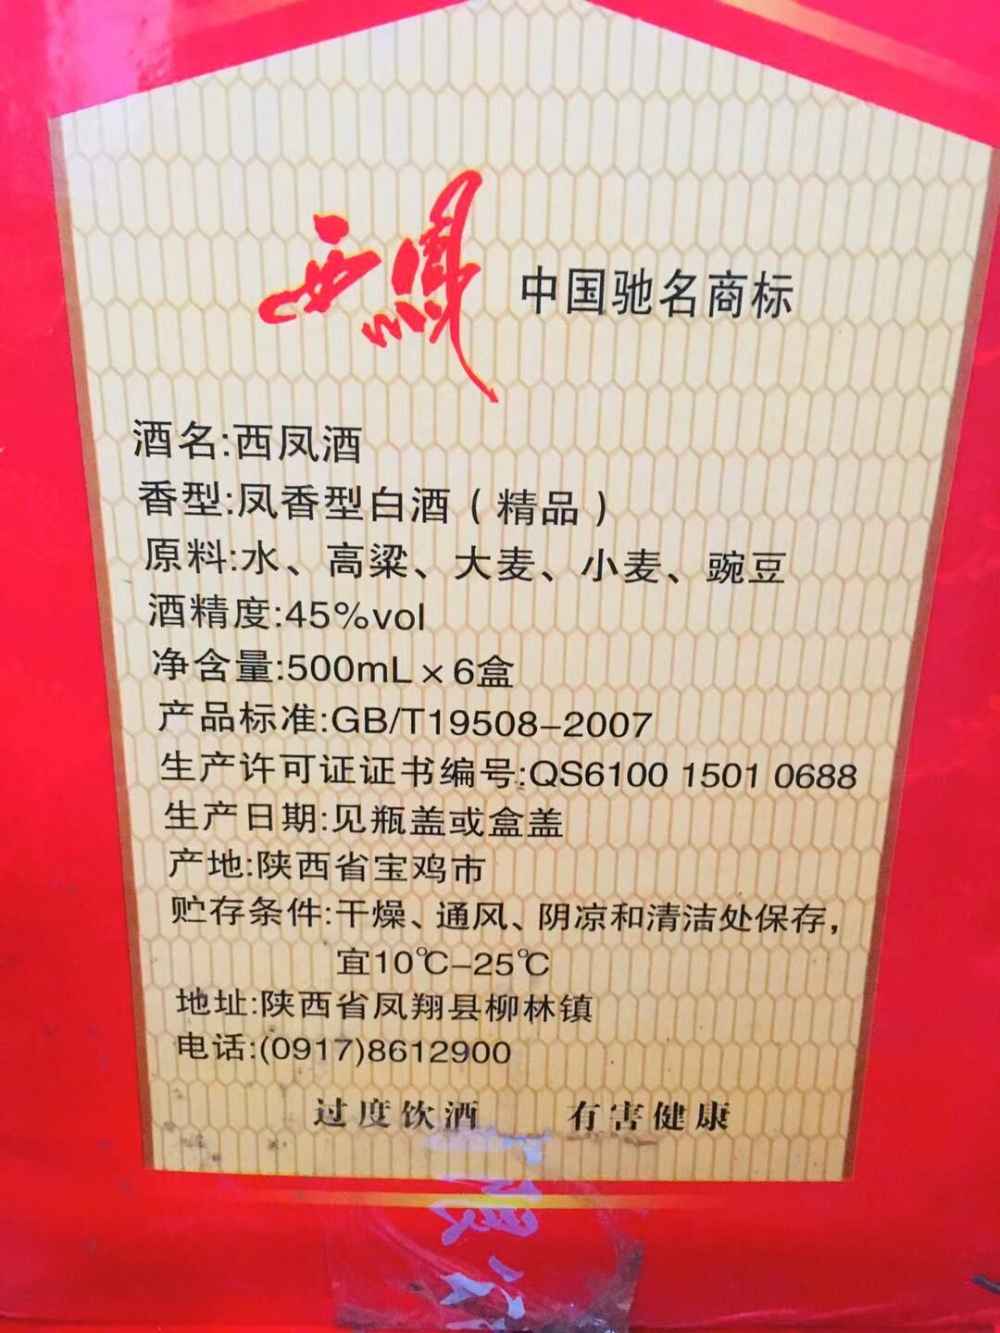 西凤 中国驰名商标
酒名:西凤酒
香型:凤香型白酒(精品)
原料:水、高粱、大麦、小麦、豌豆
酒精度:45%vol
净含量:500mL×6盒
产品标准:GB/T19508-2007
生产许可证证书编号:QS6100 1501 0688
生产日期:见瓶盖或盒盖
产地:陕西省宝鸡市
贮存条件:干燥、通风、阴凉和清洁处保存,
宜10℃-25℃
地址:陕西省凤翔县柳林镇
电话:(0917)8612900
过度饮酒 有害健康